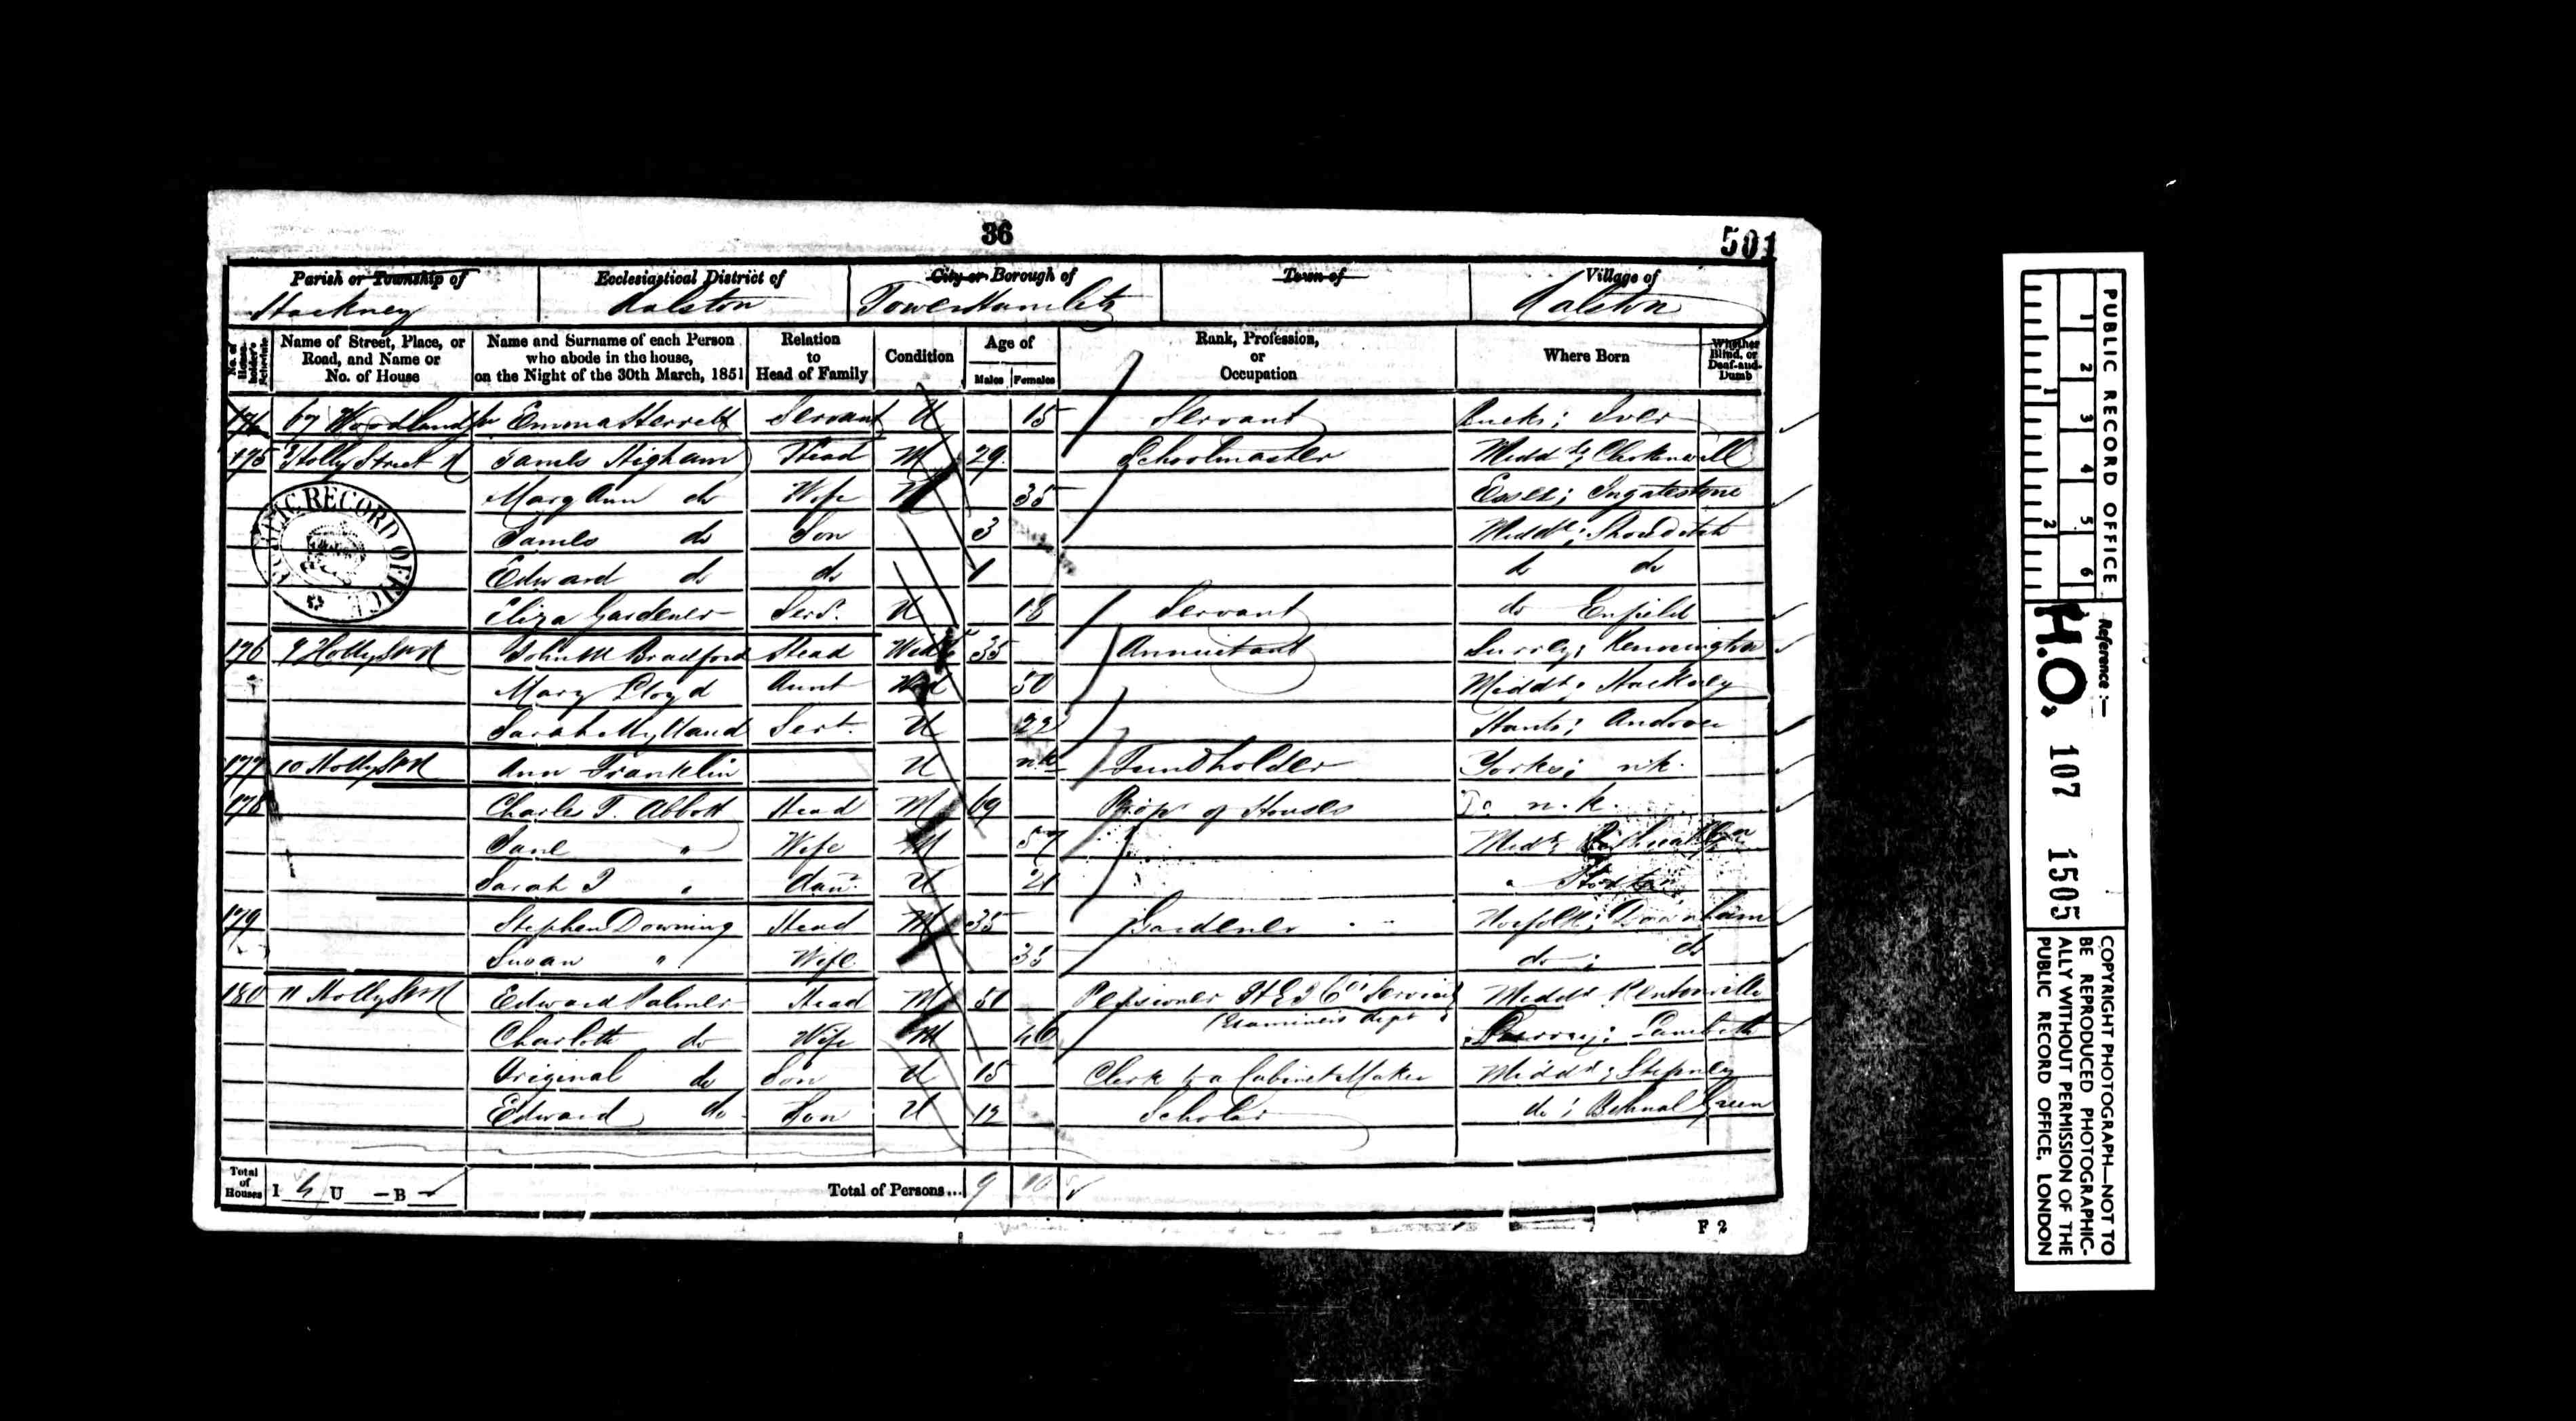 36
501
Parish or Township of
Ecclesiastical District of
City or Borough of
Town of
Village of
Hackney
Dalston
Tower Hamlets
Dalston
No. of House-holder's Schedule
Name of Street, Place, or Road, and Name or No. of House
Name and Surname of each Person who abode in the house, on the Night of the 30th March, 1851
Relation to Head of Family
Condition
Age of
Males
Females
Rank, Profession, or Occupation
Where Born
Whether Blind, or Deaf-and-Dumb
67 Emma Servant U 15 Servant Bucks; Iver
175 Holly Street James Higham Head M 29 Schoolmaster Middx; Clerkenwell
Mary Ann do Wife M 35 Essex; Ingatestone
James do Son 3 Middx; Shoreditch
Edward do do 1 do do
Eliza Gardener Servt. U 18 Servant do Enfield
176 9 Holly John M Bradford Head 35 Annuitant Surrey; Kennington
Mary Lloyd Aunt Wid 50 Middx; Hackney
Sarah Servt. U 22 Hants; Andover
177 10 Holly Ann Franklin U n.k. Fundholder Yorks; n.k.
178 Charles T. Abbott Head M 69 Propr of Houses Do n.k.
Jane " Wife M 57 Middx
Sarah " Daur. U 21 "
179 Stephen Downing Head M 35 Gardener Norfolk; Downham
Susan " Wife 33 do; do
180 11 Holly Edward Palmer Head M 50 Pensioner H.E.I.Co's Service Middx Pentonville
Examiners dept
Charlotte do Wife M 46 Surrey; Lambeth
Original do Son U 15 Clerk to a Cabinet Maker Middx; Stepney
Edward do Son U 12 Scholar do; Bethnal Green
Total of Houses
I 4 U — B —
Total of Persons... 9 10
F 2
PUBLIC RECORD OFFICE
PUBLIC RECORD OFFICE
1 2 3 4 5 6
1 2
Reference :—
H.O. 107 1505
COPYRIGHT PHOTOGRAPH—NOT TO
BE REPRODUCED PHOTOGRAPHIC-
ALLY WITHOUT PERMISSION OF THE
PUBLIC RECORD OFFICE, LONDON